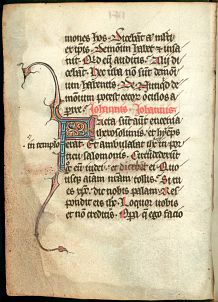 mones hos. Dicebāt aūt multi
ex ipis. Demoniū habet et insa
nit. Qid eū auditis. Alij di
cebāt. Hec uba nō sūt demoni
um habentis. Nūquid de
moniū potest cecor̄ oclōs a
pire. Johannis. Johannis.
Facta sūt aūt encenia
i iherosolimis. et hyēps
in templo erat. Et ambulabat ihc in por
ticu salomonis. Circūdederūt
g° eū iudei. et dicebāt ei. Quo
usq aīam nr̄am tollis. Si tu
es xp̄c. dic nobis palam. Res
pondit eis ihc. Loquor uobis
et nō creditis. Opa q̄ ego facio